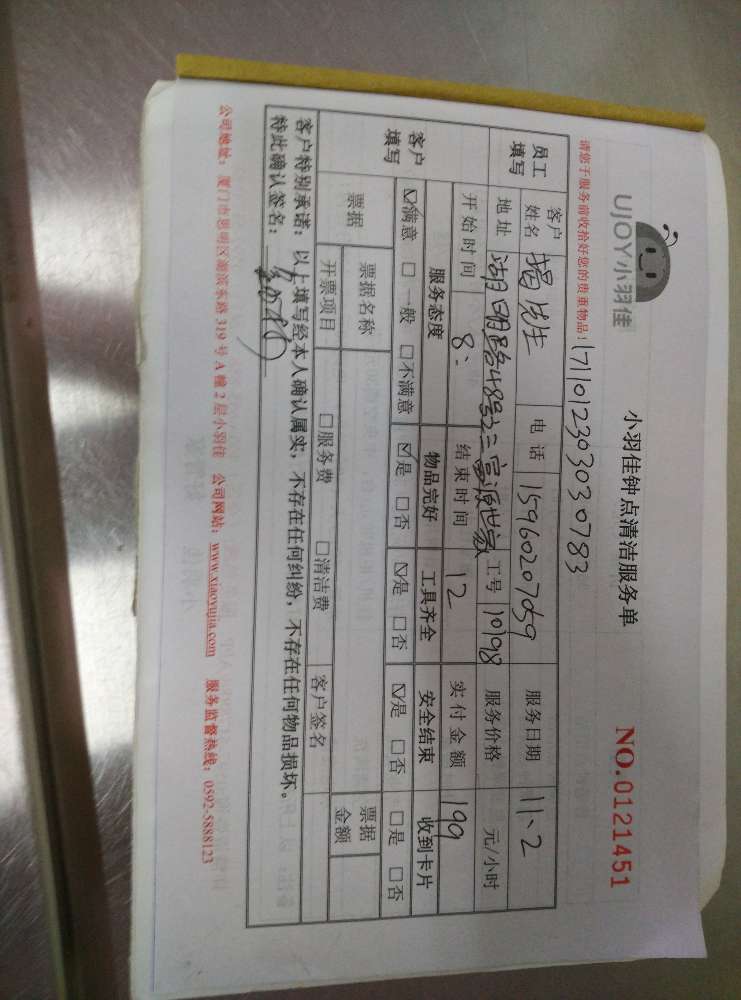 UJOY小羽佳
小羽佳钟点清洁服务单
NO.0121451
请您于服务前收拾好您的贵重物品！
171101230303030783
员工填写
客户姓名 揭先生 电话 15960207059 服务日期 11、2
地址 湖明路48号三富源世家 工号 10198 服务价格 元/小时
开始时间 8: 结束时间 12 实付金额 199
客户填写
服务态度 物品完好 工具齐全 安全结束 收到卡片
☑满意 □一般 □不满意 ☑是 □否 ☑是 □否 ☑是 □否 □是 □否
票据 票据名称 票据金额
开票项目 □服务费 □清洁费 客户签名
客户特别承诺：以上填写经本人确认属实，不存在任何纠纷，不存在任何物品损坏。
特此确认签名：
公司地址：厦门市思明区湖滨东路319号A幢2层小羽佳 公司网站：www.xiaoyujia.com 服务监督热线：0592-5888123